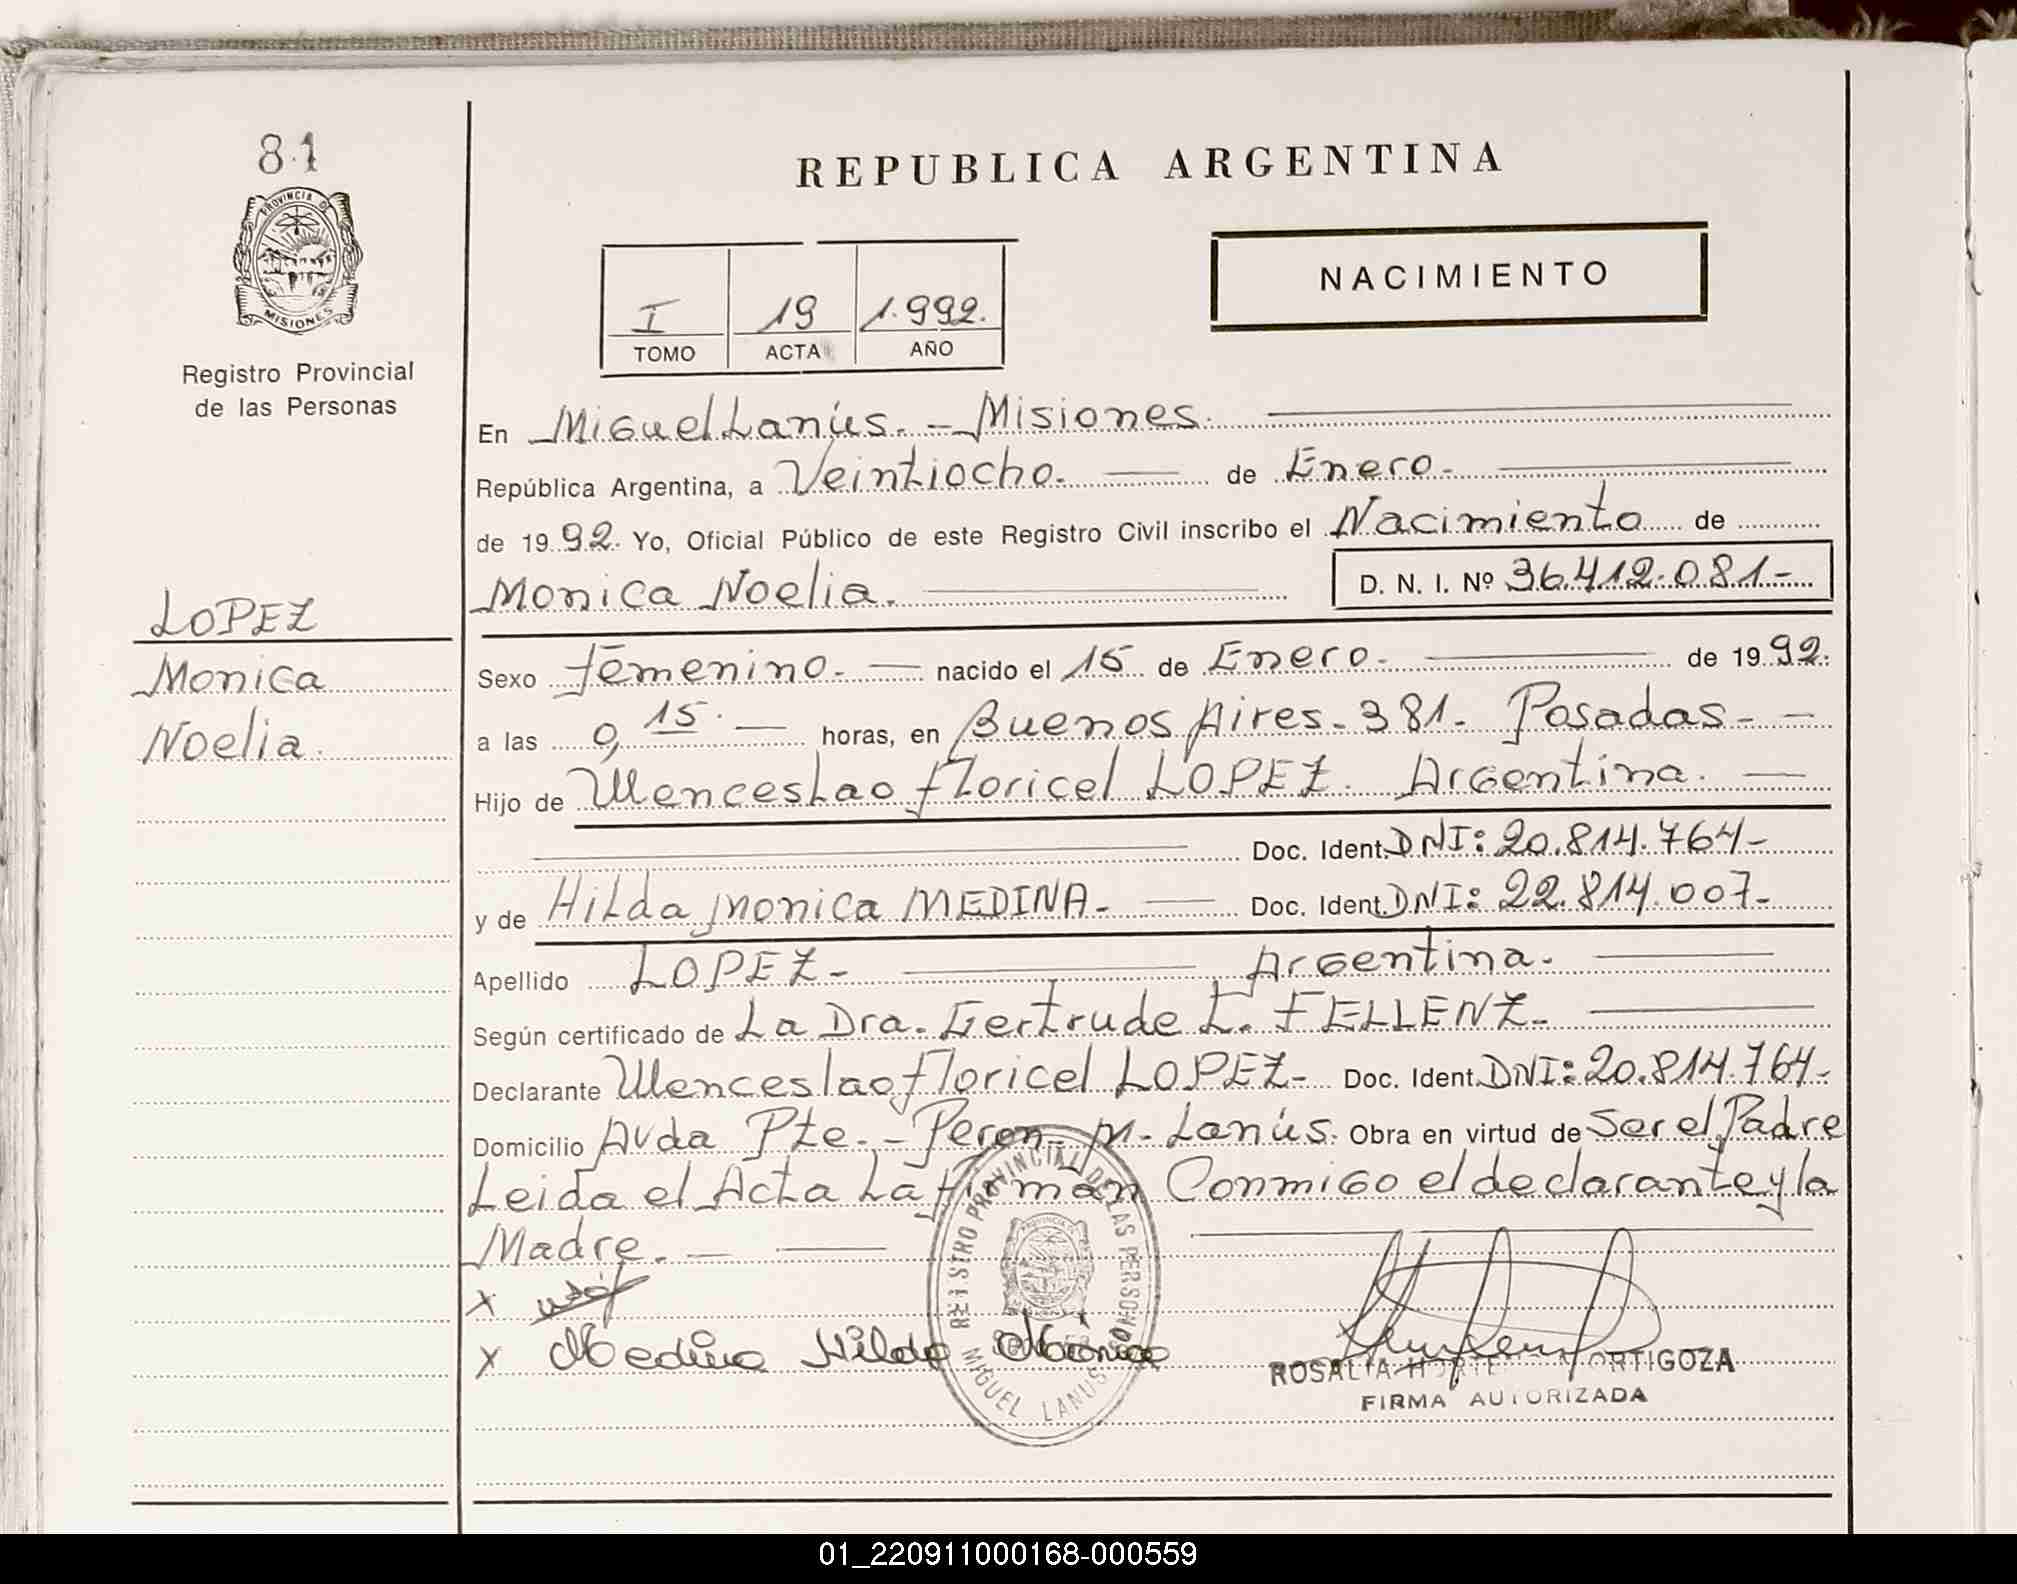 81
PROVINCIA DE
MISIONES
Registro Provincial
de las Personas
LOPEZ
Monica
Noelia.
REPUBLICA ARGENTINA
NACIMIENTO
I 19 1.992.
TOMO ACTA AÑO
En Miguel Lanús. - Misiones.
República Argentina, a Veintiocho. de Enero.
de 1992. Yo, Oficial Público de este Registro Civil inscribo el Nacimiento de
Monica Noelia. D. N. I. Nº 36.412.081-
Sexo femenino. nacido el 15 de Enero. de 1992.
a las 0,15. horas, en Buenos Aires - 381 - Posadas -
Hijo de Wenceslao Floricel LOPEZ. Argentina.
Doc. Ident. DNI: 20.814.764-
y de Hilda Monica MEDINA - Doc. Ident. DNI: 22.814.007-
Apellido LOPEZ - Argentina.
Según certificado de La Dra. Gertrude E. FELLENZ -
Declarante Wenceslao Floricel LOPEZ - Doc. Ident. DNI: 20.814.764-
Domicilio Avda Pte. - Peron - M. Lanús. Obra en virtud de Ser el Padre
Leida el Acta La firman Conmigo el declarante y la
Madre.
X
X Medina Hilda Mónica
REGISTRO PROVINCIAL DE LAS PERSONAS
MIGUEL LANUS
ROSALIA HORTENSIA ORTIGOZA
FIRMA AUTORIZADA
01_220911000168-000559